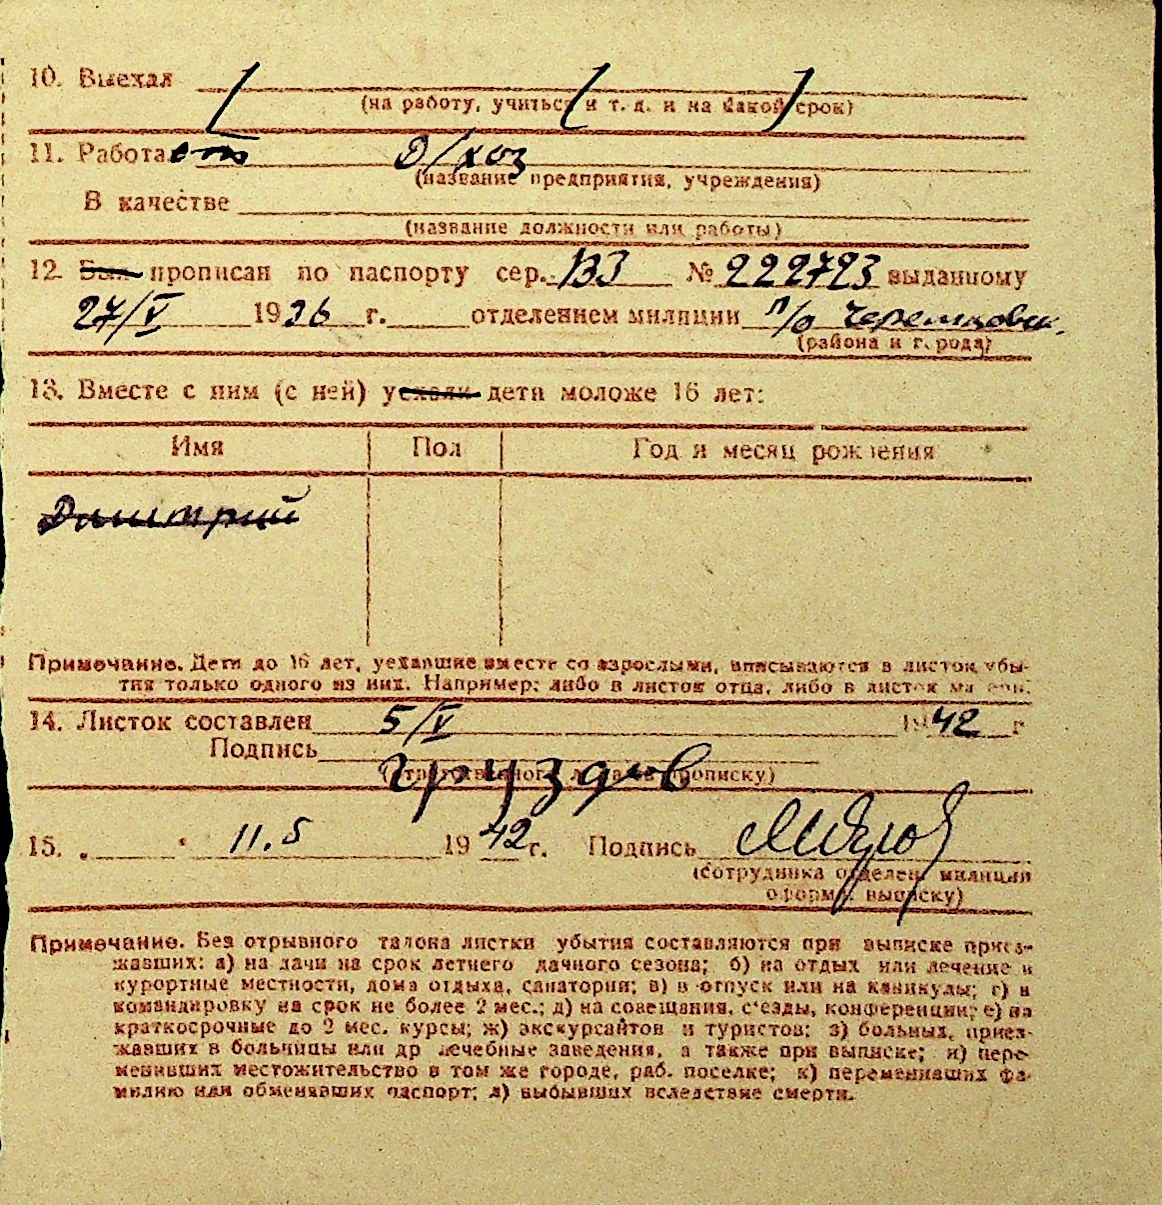 10. Выехал
(на работу, учиться и т. д. и на какой срок)
11. Работает Д/хоз
(название предприятия, учреждения)
В качестве
(название должности или работы)
12. Был прописан по паспорту сер. ВЗ № 222723 выданному
27/V 1936 г. отделением милиции п/о Черемховск.
(района и города)
13. Вместе с ним (с ней) уехали дети моложе 16 лет:
Имя Пол Год и месяц рождения
Дмитрий
Примечание. Дети до 16 лет, уехавшие вместе со взрослыми, вписываются в листок убы-
тия только одного из них. Например: либо в листок отца, либо в листок матери.
14. Листок составлен 5/V 1942 г
Подпись Груздов
(ответственного лица за прописку)
15. 11.5 1942 г. Подпись
(сотрудника отделен. милиции
оформ. выписку)
Примечание. Без отрывного талона листки убытия составляются при выписке приез-
жавших: а) на дачи на срок летнего дачного сезона; б) на отдых или лечение в
курортные местности, дома отдыха, санатории; в) в отпуск или на каникулы; г) в
командировку на срок не более 2 мес.; д) на совещания, с'езды, конференции; е) на
краткосрочные до 2 мес. курсы; ж) экскурсантов и туристов; з) больных, приез-
жавших в больницы или др лечебные заведения, а также при выписке; и) пере-
менивших местожительство в том же городе, раб. поселке; к) переменивших фа-
милию или обменявших паспорт; л) выбывших вследствие смерти.